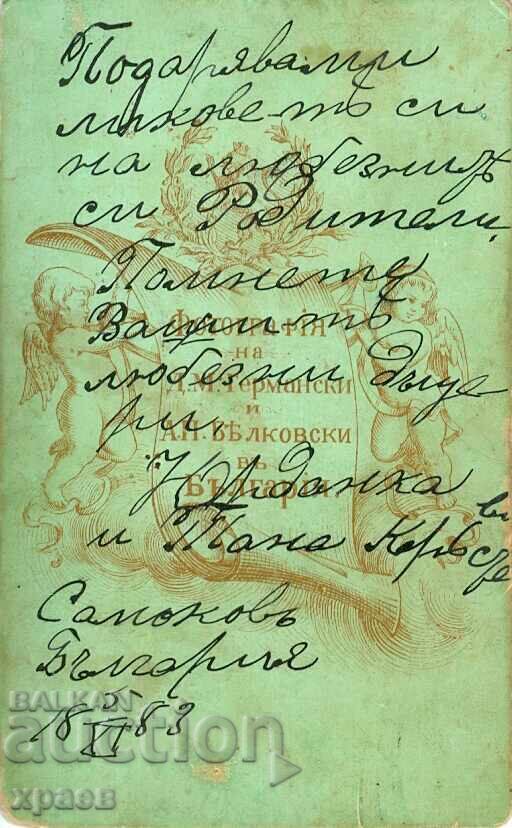 Подарявами
ликоветѣ си
на любезнитѣ
си Родители,
Помнете
Вашитѣ
любезни дъще
ри
Юрданка
и Тана
Самоковъ
България
18 5/XI 83
Фотография
на
Д.М. Германски
и
А.П. Бѣлковски
въ
България
BALKAN
auction
храев